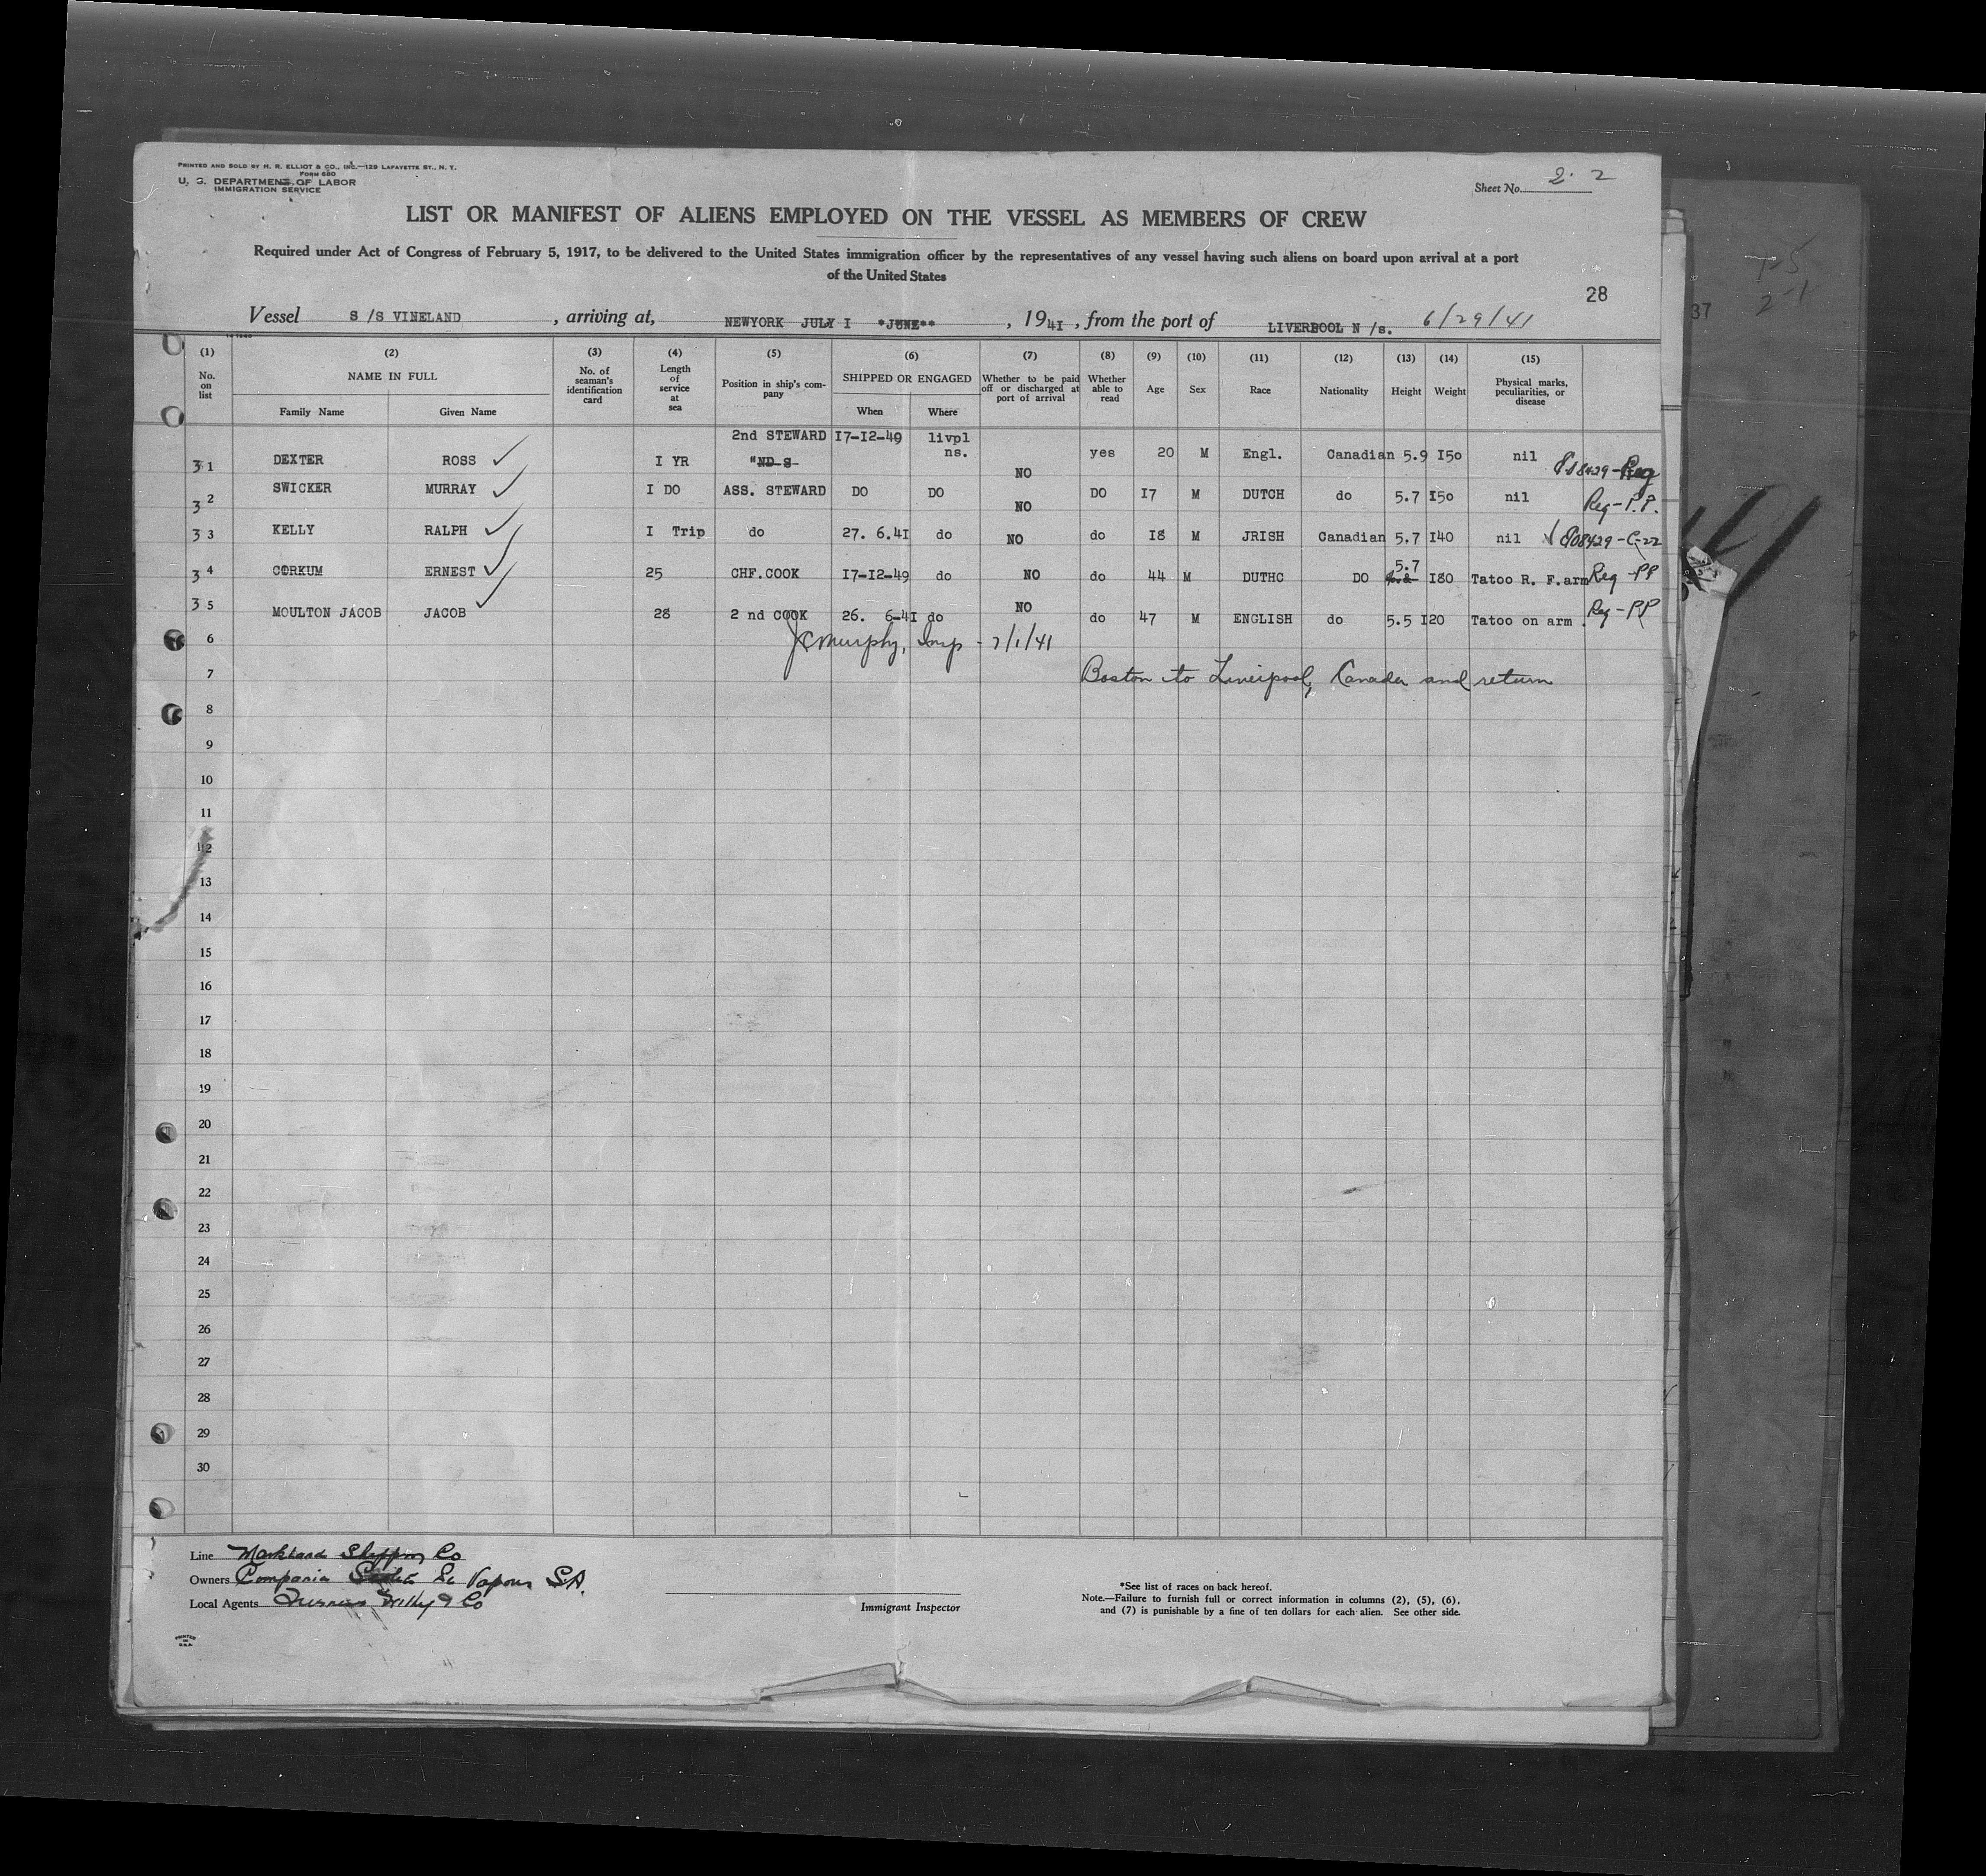 PRINTED AND SOLD BY H. R. ELLIOT & CO., INC.—129 LAFAYETTE ST., N. Y.
FORM 680
U. S. DEPARTMENT OF LABOR
IMMIGRATION SERVICE
Sheet No. 2. 2
LIST OR MANIFEST OF ALIENS EMPLOYED ON THE VESSEL AS MEMBERS OF CREW
Required under Act of Congress of February 5, 1917, to be delivered to the United States immigration officer by the representatives of any vessel having such aliens on board upon arrival at a port
of the United States
28
Vessel S/S VINELAND, arriving at, NEWYORK JULY I *JUNE**, 1941, from the port of LIVERPOOL N/s. 6/29/41
(1) (2) (3) (4) (5) (6) (7) (8) (9) (10) (11) (12) (13) (14) (15)
No. on list NAME IN FULL Family Name Given Name No. of seaman's identification card Length of service at sea Position in ship's company SHIPPED OR ENGAGED When Where Whether to be paid off or discharged at port of arrival Whether able to read Age Sex Race Nationality Height Weight Physical marks, peculiarities, or disease
31 DEXTER ROSS I YR 2nd STEWARD "ND S 17-12-49 livpl ns. NO yes 20 M Engl. Canadian 5.9 150 nil 808429-Reg
32 SWICKER MURRAY I DO ASS. STEWARD DO DO NO DO 17 M DUTCH do 5.7 150 nil Reg-P.P.
33 KELLY RALPH I Trip do 27. 6.41 do NO do 18 M JRISH Canadian 5.7 140 nil 808429-C-22
34 CORKUM ERNEST 25 CHF.COOK 17-12-49 do NO do 44 M DUTHC DO 5.7 180 Tatoo R. F.arm Reg -PP
35 MOULTON JACOB JACOB 28 2 nd COOK 26. 6-41 do NO do 47 M ENGLISH do 5.5 120 Tatoo on arm . Reg-PP
6 JC Murphy, Insp - 7/1/41
7 Boston to Liverpool, Canada and return
8
9
10
11
12
13
14
15
16
17
18
19
20
21
22
23
24
25
26
27
28
29
30
Line Markland Shipping Co
Owners Compania de Vapores S.A.
Local Agents & Co
Immigrant Inspector
*See list of races on back hereof.
Note.—Failure to furnish full or correct information in columns (2), (5), (6),
and (7) is punishable by a fine of ten dollars for each alien. See other side.
PRINTED
IN
U.S.A.
37